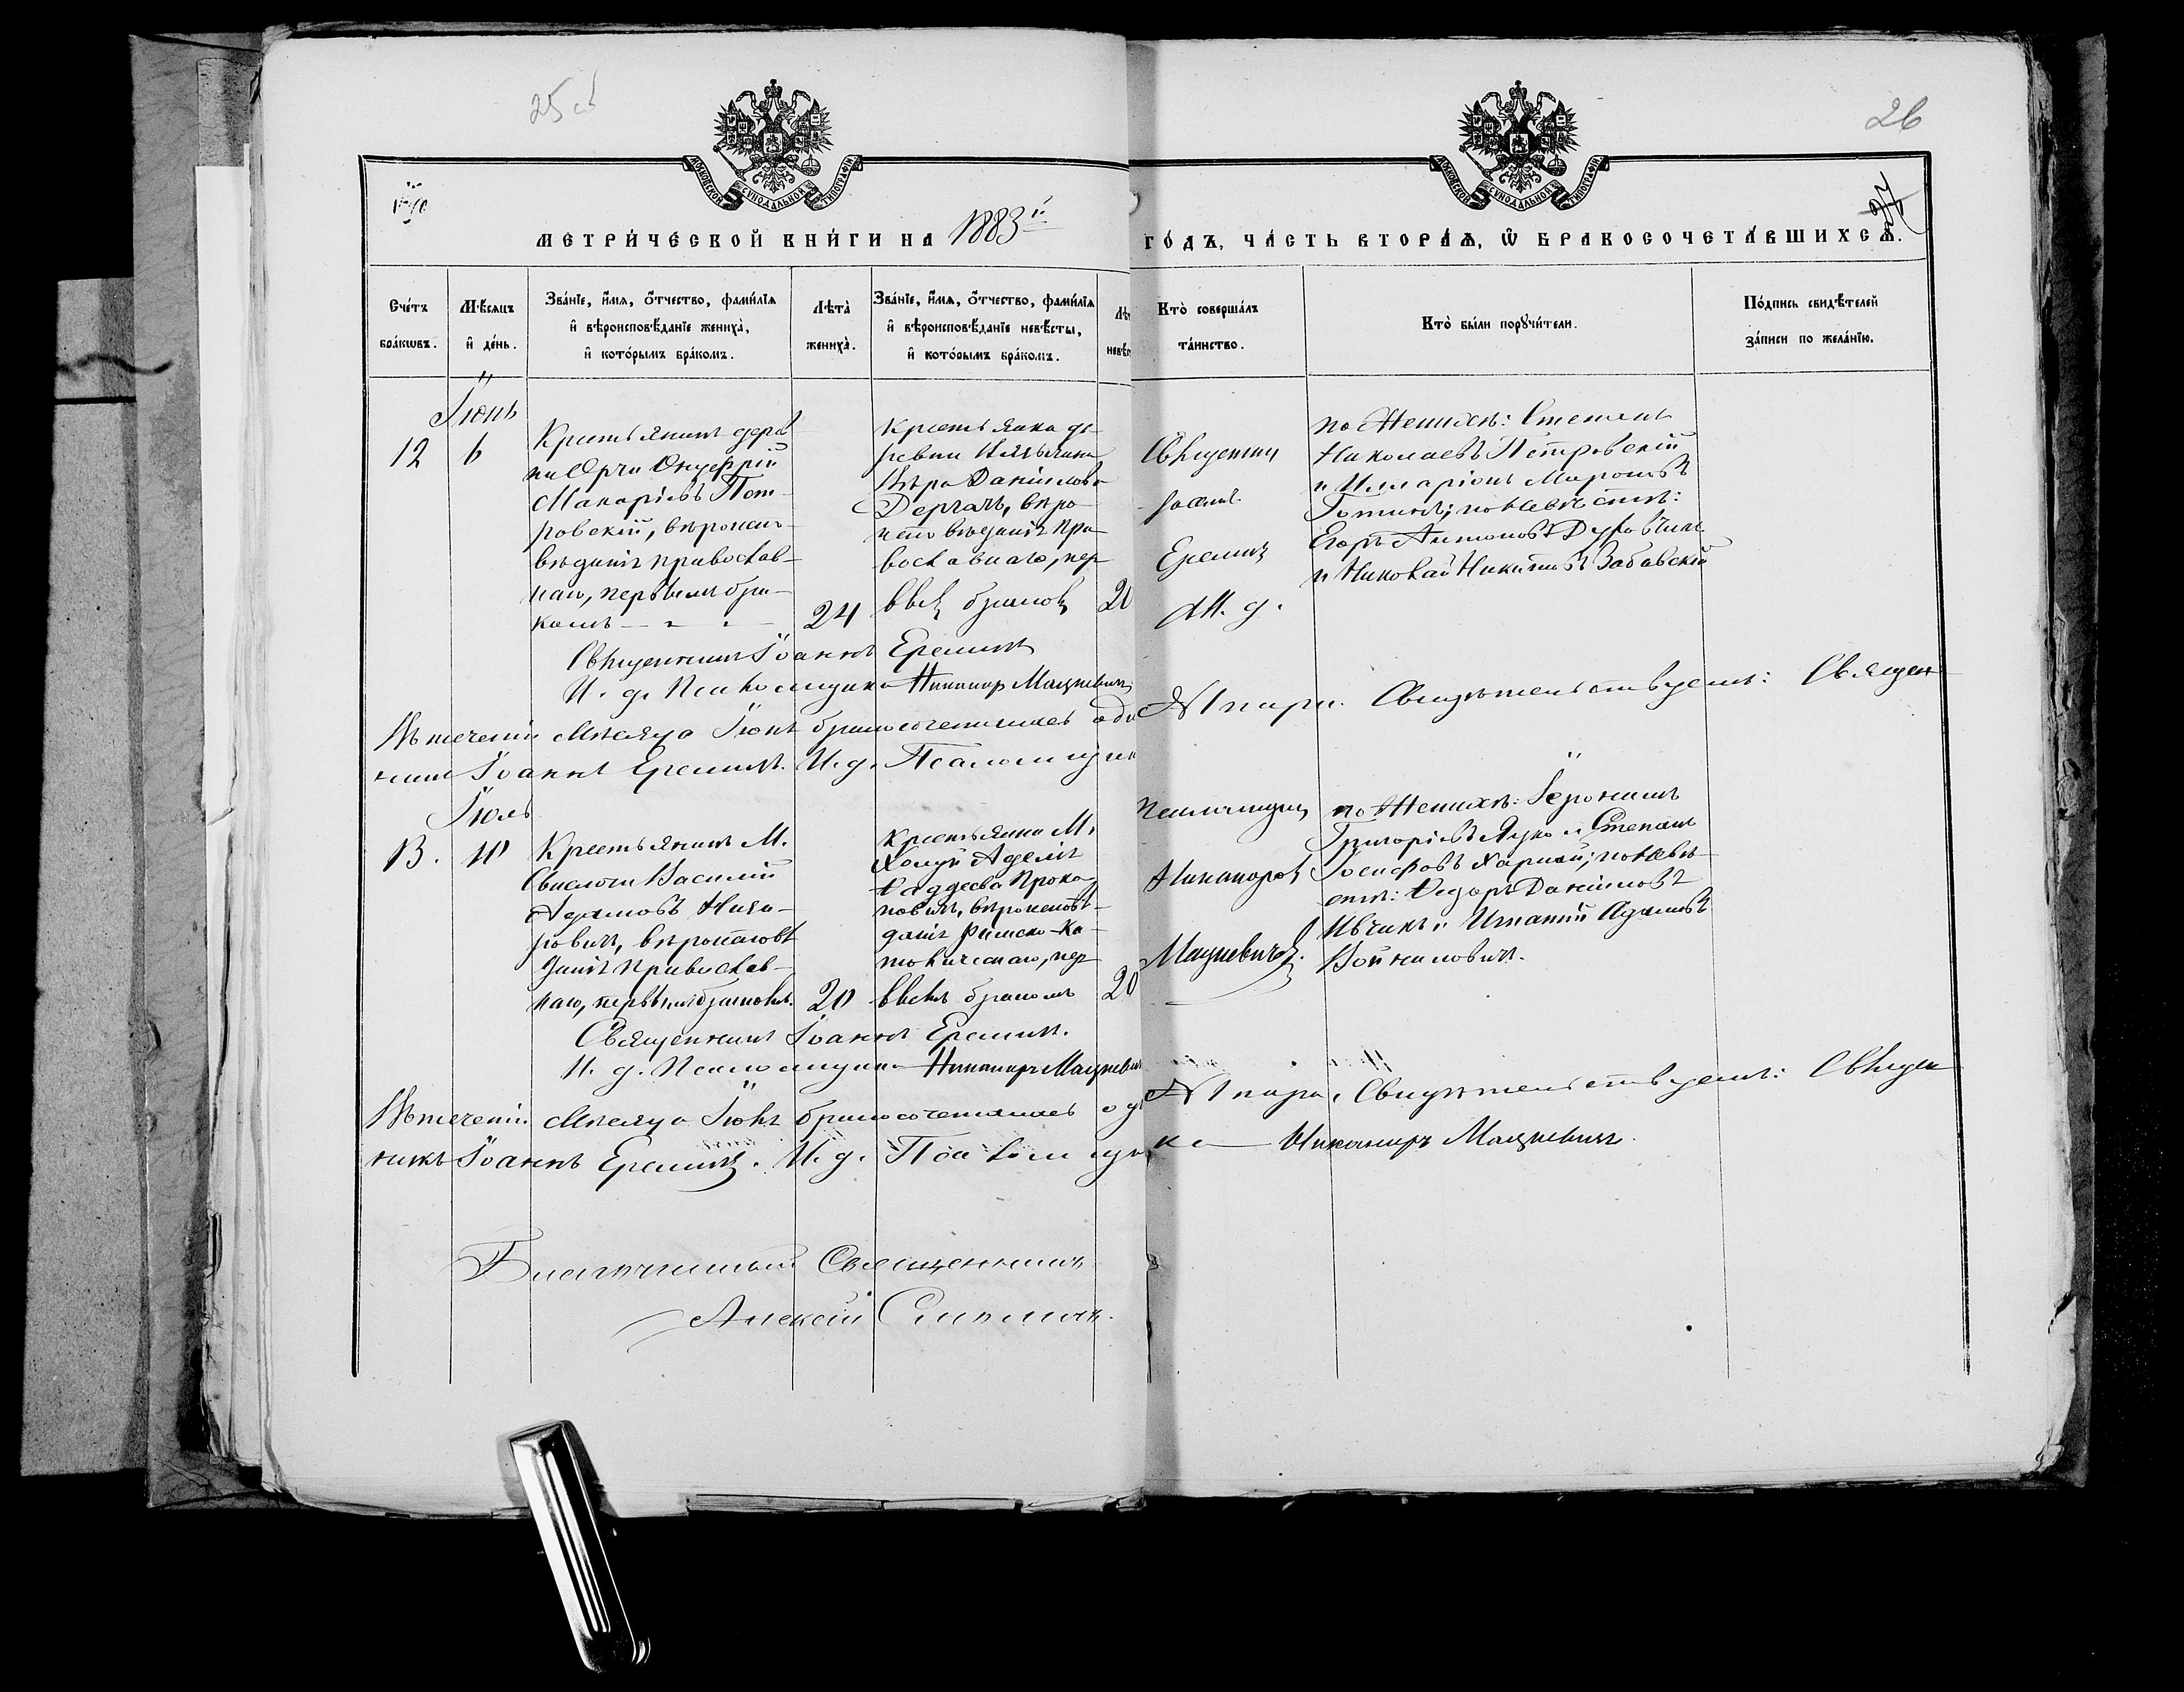 25 об
26
МОСКОВСКОЙ СѴНОДАЛЬНОЙ ТИПОГРАФІИ
МОСКОВСКОЙ СѴНОДАЛЬНОЙ ТИПОГРАФІИ
МЕТРИ́ЧЕСКОЙ КНИ́ГИ НА 1883й ГО́ДЪ, ЧА́СТЬ ВТОРА́Ѧ, Ѽ БРАКОСОЧЕТА́ВШИХСѦ.
Сче́тъ бра́кѡвъ.
Мѣ́сяцъ и де́нь.
Зва́нїе, и́мя, о́тчество, фами́лїя
и вѣроисповѣ́данїе жениха̀,
и кото́рымъ бра́комъ.
Лѣта̀ жениха̀.
Зва́нїе, и́мя, о́тчество, фами́лїя
и вѣроисповѣ́данїе невѣ́сты,
и кото́рымъ бра́комъ.
Лѣт
невѣс
Кто̀ соверша́лъ
та́инство.
Кто̀ бы́ли порꙋчи́тели.
По́дпись свидѣ́телей
за́писи по жела́нїю.
Іюнь
12
6
Крестьянинъ дерев
ни Орчи Онуфрій
Макаріевъ Пет-
ровскій, вѣроиспо-
вѣданія православ-
наго, первымъ бра-
комъ
24
Крестьянка де-
ревни
Вѣра Даніилова
Дергачъ, вѣро-
исповѣданія пра-
вославнаго, пер-
вымъ бракомъ
20
Священникъ
Іоаннъ
Ереминъ
по Женихѣ: Степанъ
Николаевъ Петровскій
и Илларіонъ Мироновъ
по невѣстѣ:
Егоръ Антоновъ
и Николай Никитинъ Забавскій
Священникъ Іоаннъ Ереминъ
И. д. Псаломщика Никаноръ Мацкевичъ
Въ теченіи мѣсяца Іюня бракосочеталась одна пара. Свидѣтельствуемъ: Священ-
никъ Іоаннъ Ереминъ. И. д. Псаломщик
Іюль
13.
10
Крестьянинъ М.
Свислочи Василій
Адамовъ
вѣроисповѣ
данія Православ-
наго, первымъ бракомъ.
20
Крестьянка М.
Холуй Аделія
Фаддеева Проко-
повичъ, вѣроисповѣ-
данія Римско-Ка-
толическаго, пер-
вымъ бракомъ
20
Псаломщик
Никаноръ
Мацкевичъ.
по Женихѣ: Іеронимъ
Григоріевъ Яцко и Степанъ
Іосифовъ по невѣ-
стѣ: Федоръ Даніиловъ
Ивчикъ и Игнатій Адамовъ
Войниловичъ.
Священникъ Іоаннъ Ереминъ.
И. д. Псаломщика Никаноръ Мацкевич
Въ теченіи мѣсяца Іюля бракосочеталась одна пара. Свидѣтельствуемъ: Священ
никъ Іоаннъ Ереминъ. И. д. Псаломщика Никаноръ Мацкевичъ.
Благочинный Священникъ
Алексій